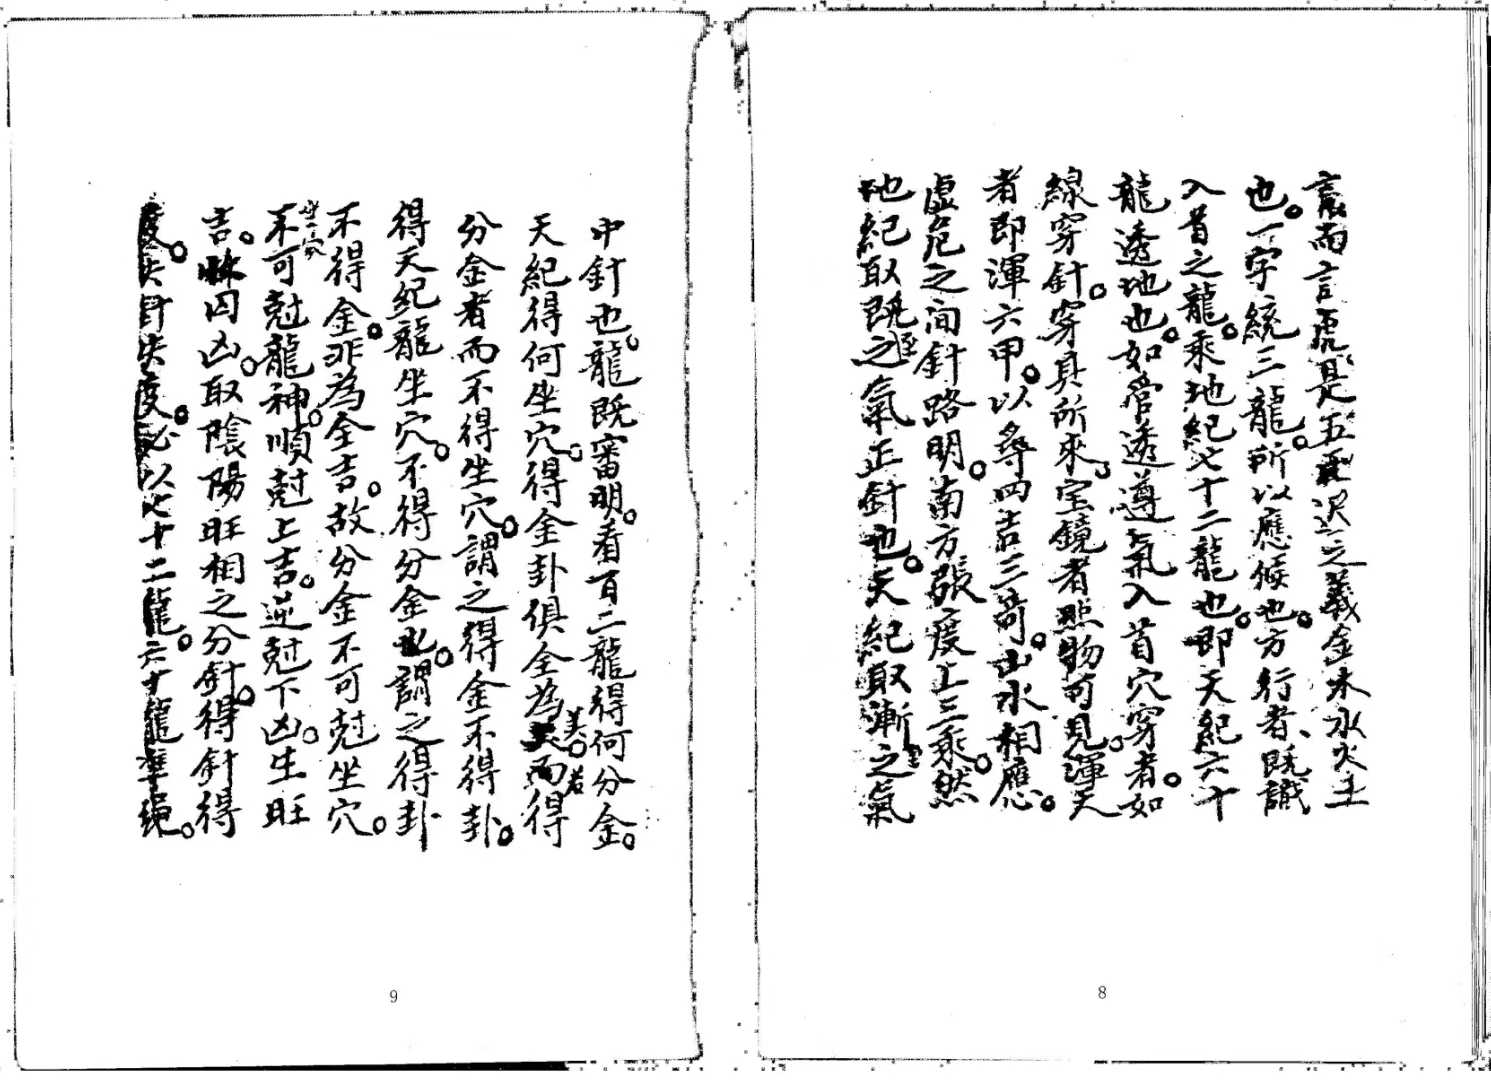 言而言虎是五之義金木水火土
也一字統三龍所以應候也方行者既識
入首之龍乘地紀七十二龍也即天紀六十
龍透地也如管透遵氣入首穴穿者如
線穿針穿具所來宝鏡者照物可見渾天
者即渾六甲以尋四吉三奇山水相應
虛危之间針路明南方張度上三乘然
地紀取既往之氣正針也天紀取漸之氣
8
中針也龍既審明看百二龍得何分金
天紀得何坐穴得金卦俱全為美若得
分金者而不得坐穴謂之得金不得卦
得天紀龍坐穴不得分金謂之得卦
不得金非為全吉故分金不可尅坐穴
不可尅龍神順尅上吉逆尅下凶生旺
吉休囚凶取陰陽旺相之分針得針得
度失針失度必以七十二龍六十龍準繩
9